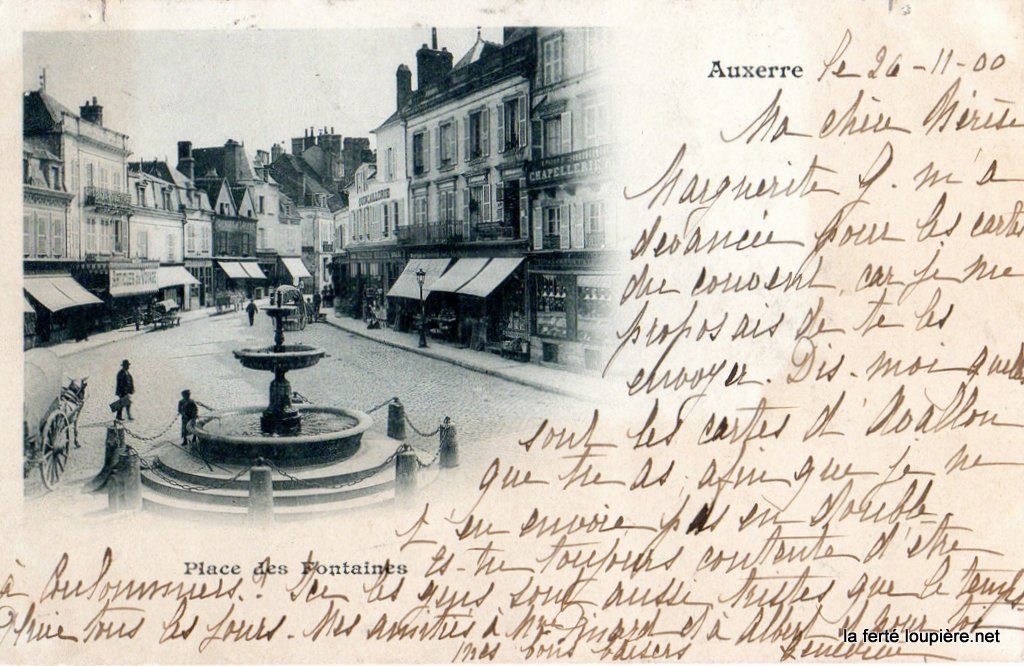 Auxerre le 26-11-00
Ma chère
Marguerite G. m'a
devancée pour les cartes
du couvent, car je me
proposais de te les
envoyer. Dis-moi quelles
sont les cartes d'Avallon
que tu as, afin que je ne
t'en envoie pas en double
Es-tu toujours contente d'être
à Coulommiers? Ici les gens sont aussi tristes que le temps
pleut tous les jours. Mes amitiés à Mme et à Albert pour toi
mes bons baisers Geneviève
CHAPELLERIE
ARTICLES DE VOYAGE
Place des Fontaines
la ferté loupière.net